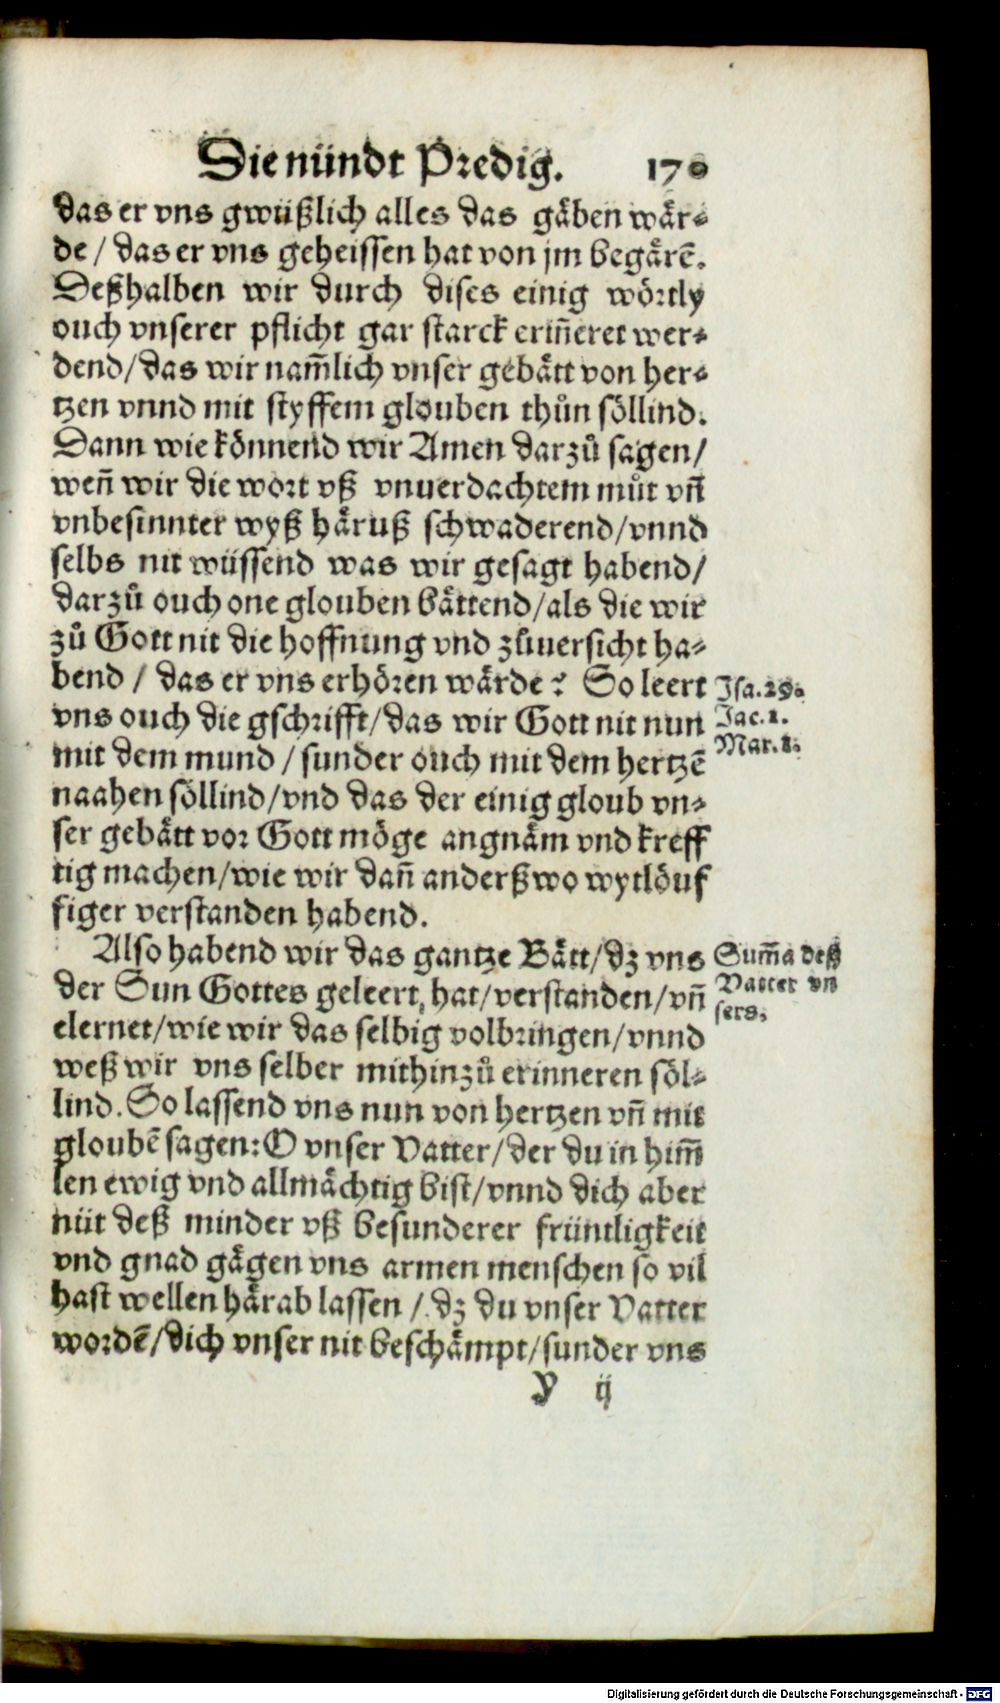 Die nündt Predig. 170
das er vns gwüßlich alles das gäben wär⸗
de / das er vns geheissen hat von jm begärē.
Deßhalben wir durch dises einig wörtly
ouch vnserer pflicht gar starck eriñeret wer⸗
dend/das wir nam̄lich vnser gebätt von her⸗
tzen vnnd mit styffem glouben thůn söllind.
Dann wie könnend wir Amen darzů sagen/
weñ wir die wort vß vnuerdachtem můt vñ
vnbesinnter wyß häruß schwaderend/vnnd
selbs nit wüssend was wir gesagt habend/
darzů ouch one glouben bättend/als die wir
zů Gott nit die hoffnung vnd zůuersicht ha⸗
bend / das er vns erhören wärde? So leert
vns ouch die gschrifft/das wir Gott nit nun
mit dem mund / sunder ouch mit dem hertzē
naahen söllind/vnd das der einig gloub vn⸗
ser gebätt vor Gott möge angnäm vnd kreff
tig machen/wie wir dañ anderßwo wytlöuf
figer verstanden habend.
Isa. 29.
Jac. 1.
Mar. 8.
Also habend wir das gantze Bätt/dz vns
der Sun Gottes geleert hat/verstanden/vñ
elernet/wie wir das selbig volbringen/vnnd
weß wir vns selber mithinzů erinneren söl⸗
lind. So lassend vns nun von hertzen vñ mit
gloubē sagen: O vnser Vatter/der du in him̄
len ewig vnd allmächtig bist/vnnd dich aber
nüt deß minder vß besunderer früntligkeit
vnd gnad gägen vns armen menschen so vil
hast wellen härab lassen / dz du vnser Vatter
wordē/dich vnser nit beschämpt/sunder vns
Sum̄a deß
Vatter vn
sers.
Y ij
Digitalisierung gefördert durch die Deutsche Forschungsgemeinschaft - DFG